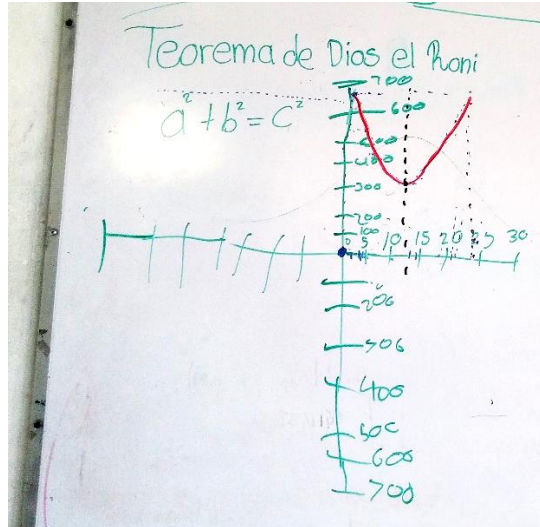 Teorema de Dios el Roni
a² + b² = c²
700
600
400
300
200
100
0 5 10 15 20 25 30
200
400
600
700